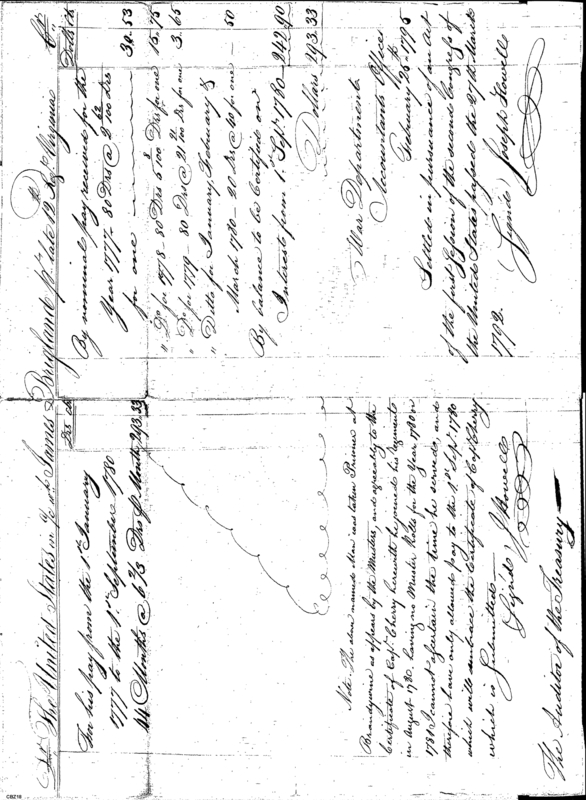 Dr. The United States in a/c with James Brigland Pte. late 12 Regt. Virginia Cr.
Ds. cts.
For his pay from the 1st. January
1777 to the 1st. September 1780
44 Months @ 6 2/3 Drs. pr. Month 293.33
Dolls. cts.
By nominal pay received for the
Year 1777 80 Drs @ 2 100 Drs
for one 30.53
" Do for 1778 - 80 Drs 6 100 Drs for one 15.75
" Do for 1779 - 80 Drs @ 21 100 Drs for one 3.65
" Ditto for January February &
March 1780 - 20 Drs @ 40 for one .50
By balance to be Certified on
Interest from 1st. Septr. 1780 242.90
Dollars 293.33
Note. The above named Man was taken Prisoner at
Brandywine as appears by the Musters, and agreeably to the
Certificate of Capt. Cherry herewith he joined his regiment
in August 1780. having no Muster Rolls for the Year 1780 or
1781 I cannot ascertain the time he served, and
therefore have only allowed pay to the 1st. Septr. 1780
which will embrace the Certificate of Capt Cherry
which is Submitted
Signed J Howell
The Auditor of the Treasury
War Department
Accountants Office
February 25th. 1795
Settled in pursuance of an Act
of the first Session of the second Congress of
the United States passed the 27th March
1792.
(Signed) Joseph Howell
CB218